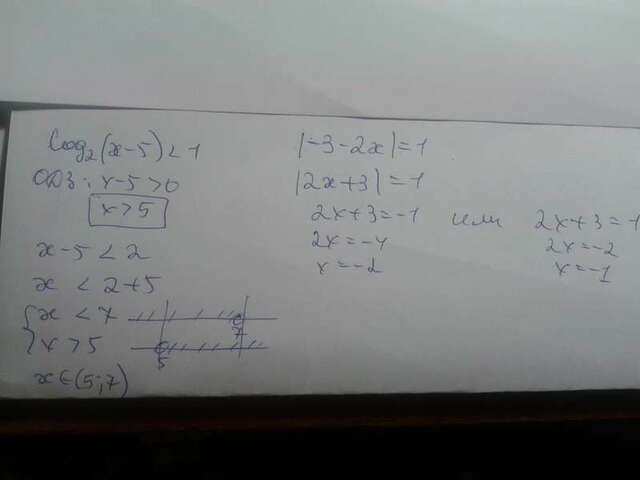 Log₂(x-5)<1
ОДЗ: x-5>0
x>5
x-5<2
x<2+5
{x<7
x>5
7
5
x∈(5;7)
|-3-2x|=1
|2x+3|=1
2x+3=-1 или 2x+3=1
2x=-4 2x=-2
x=-2 x=-1